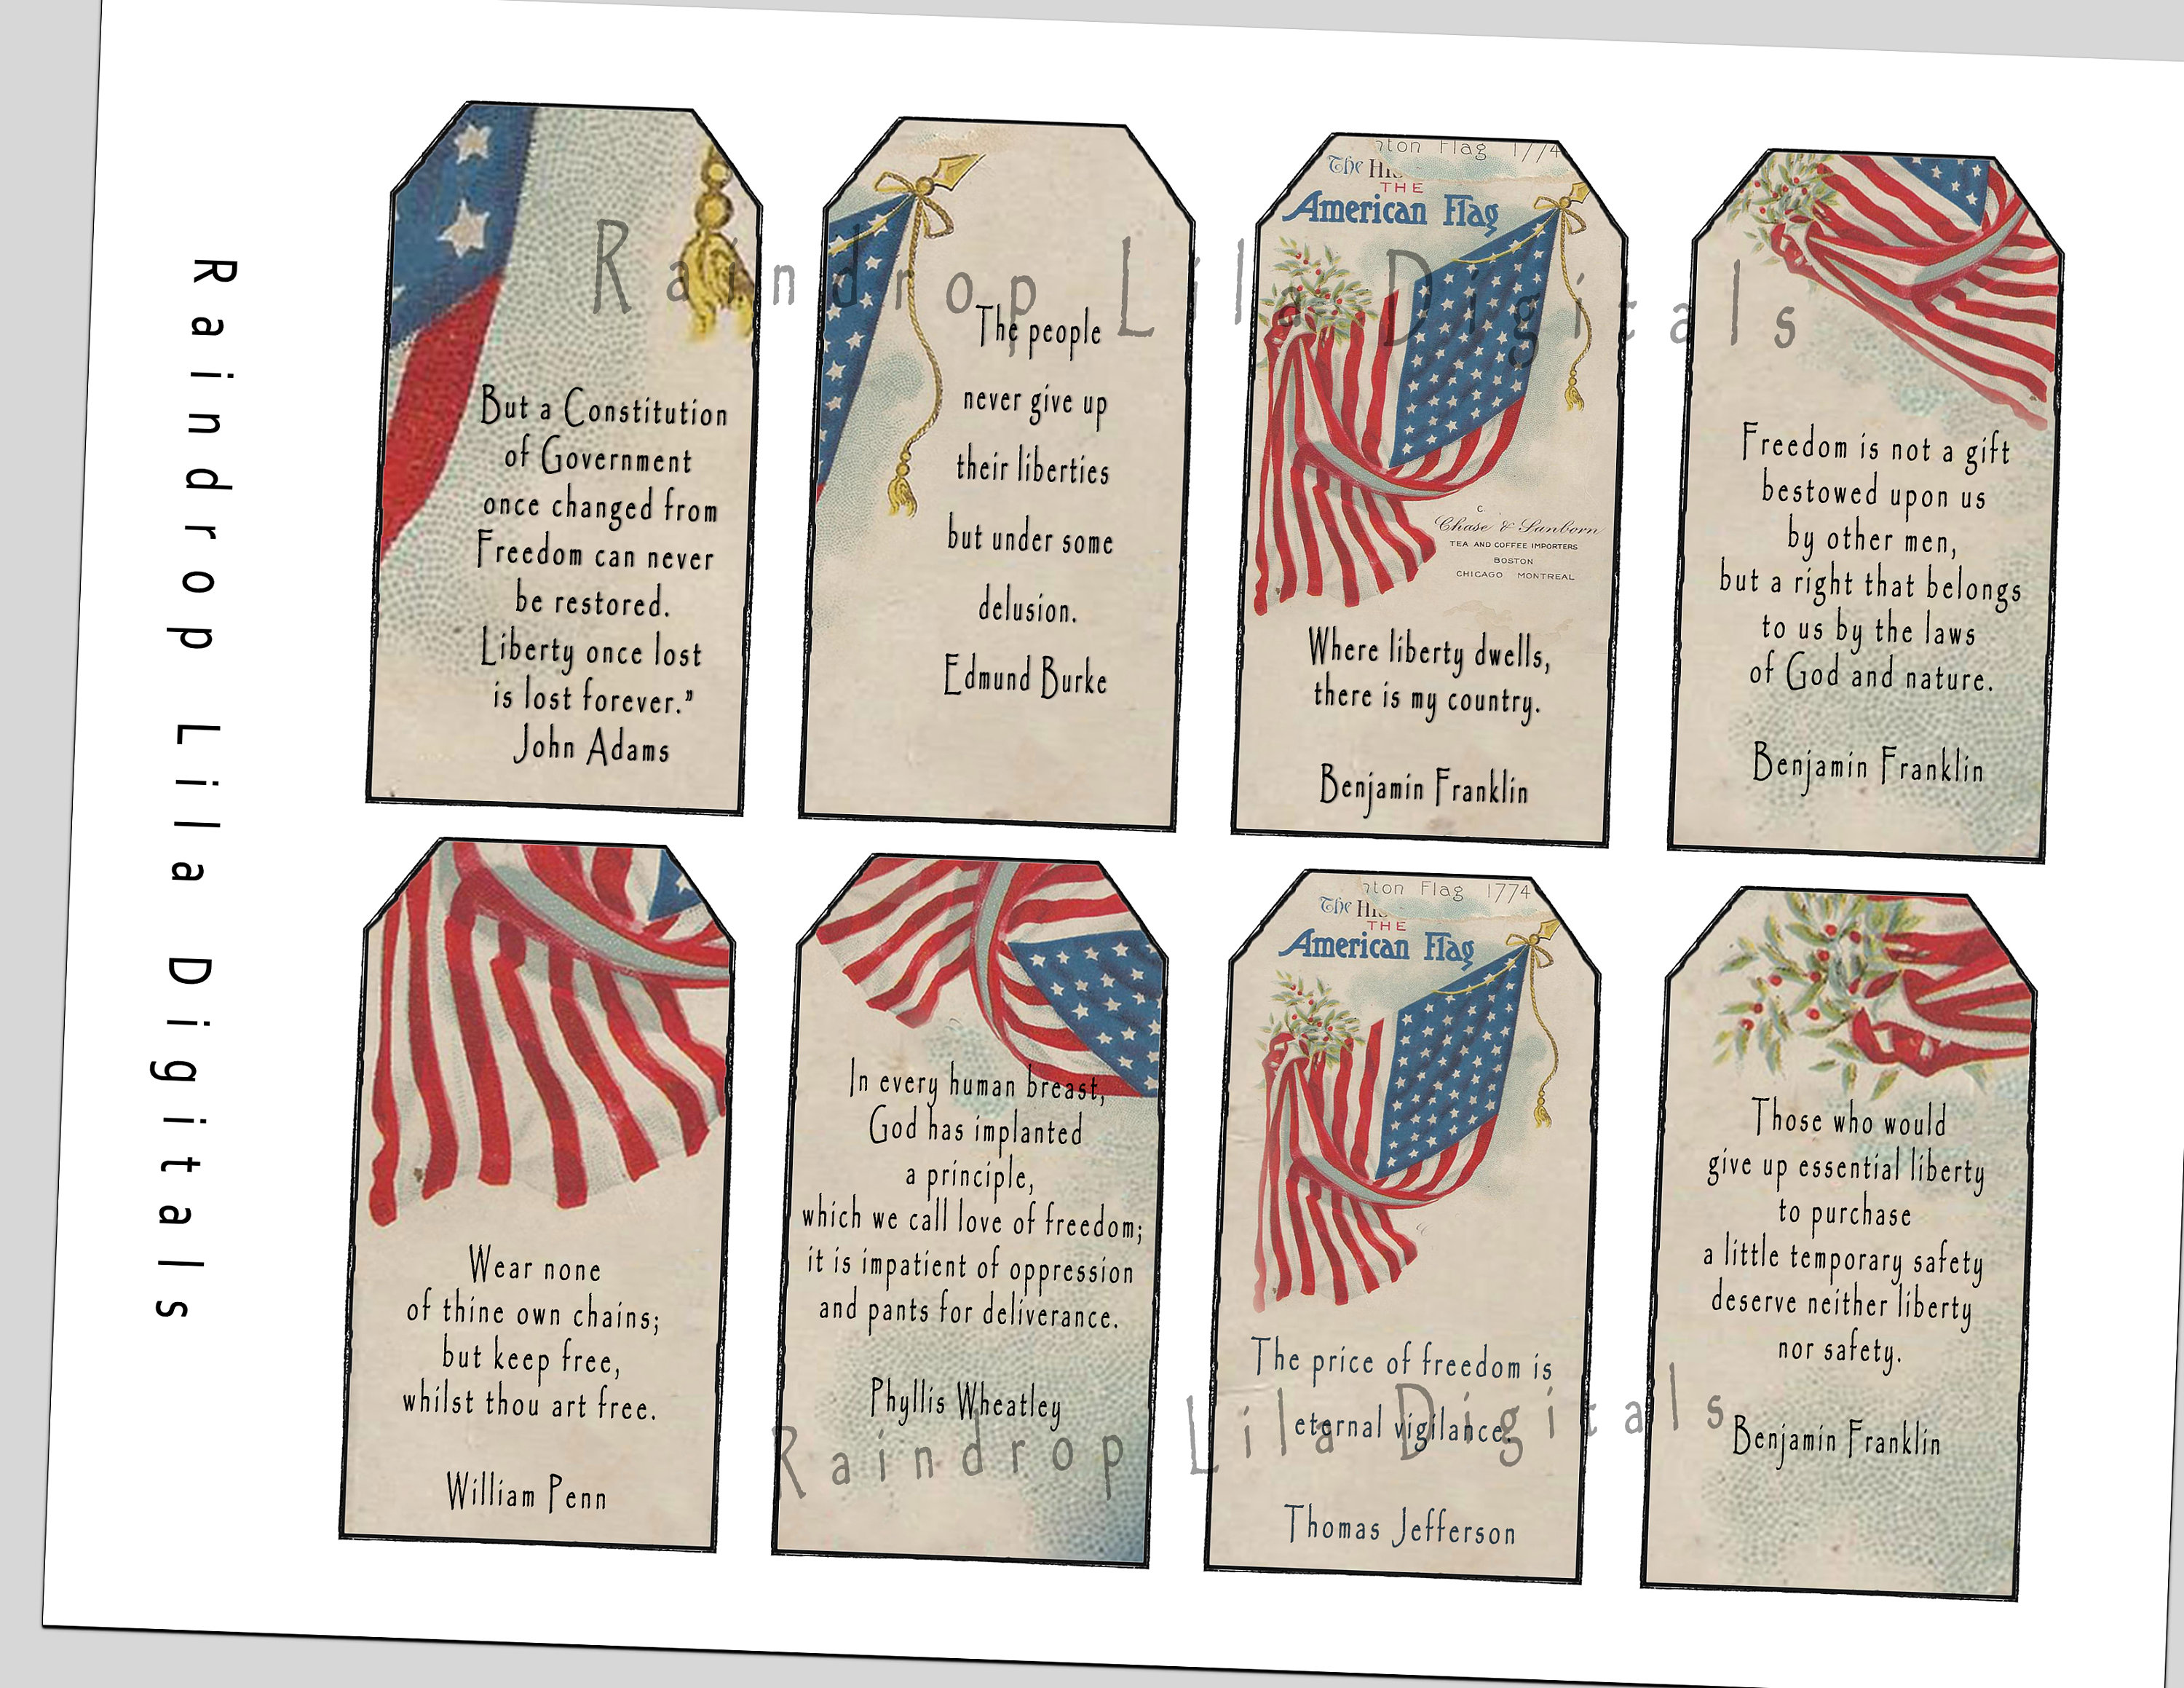 Raindrop Lila Digitals
Raindrop Lila Digitals
But a Constitution
of Government
once changed from
Freedom can never
be restored.
Liberty once lost
is lost forever.”
John Adams
The people
never give up
their liberties
but under some
delusion.
Edmund Burke
Flag 1774
The
THE
American Flag
C.
Chase & Sanborn
TEA AND COFFEE IMPORTERS
BOSTON
CHICAGO MONTREAL
Where liberty dwells,
there is my country.
Benjamin Franklin
Freedom is not a gift
bestowed upon us
by other men,
but a right that belongs
to us by the laws
of God and nature.
Benjamin Franklin
Wear none
of thine own chains;
but keep free,
whilst thou art free.
William Penn
In every human breast,
God has implanted
a principle,
which we call love of freedom;
it is impatient of oppression
and pants for deliverance.
Phyllis Wheatley
Flag 1774
The
THE
American Flag
The price of freedom is
eternal vigilance.
Thomas Jefferson
Those who would
give up essential liberty
to purchase
a little temporary safety
deserve neither liberty
nor safety.
Benjamin Franklin
Raindrop Lila Digitals